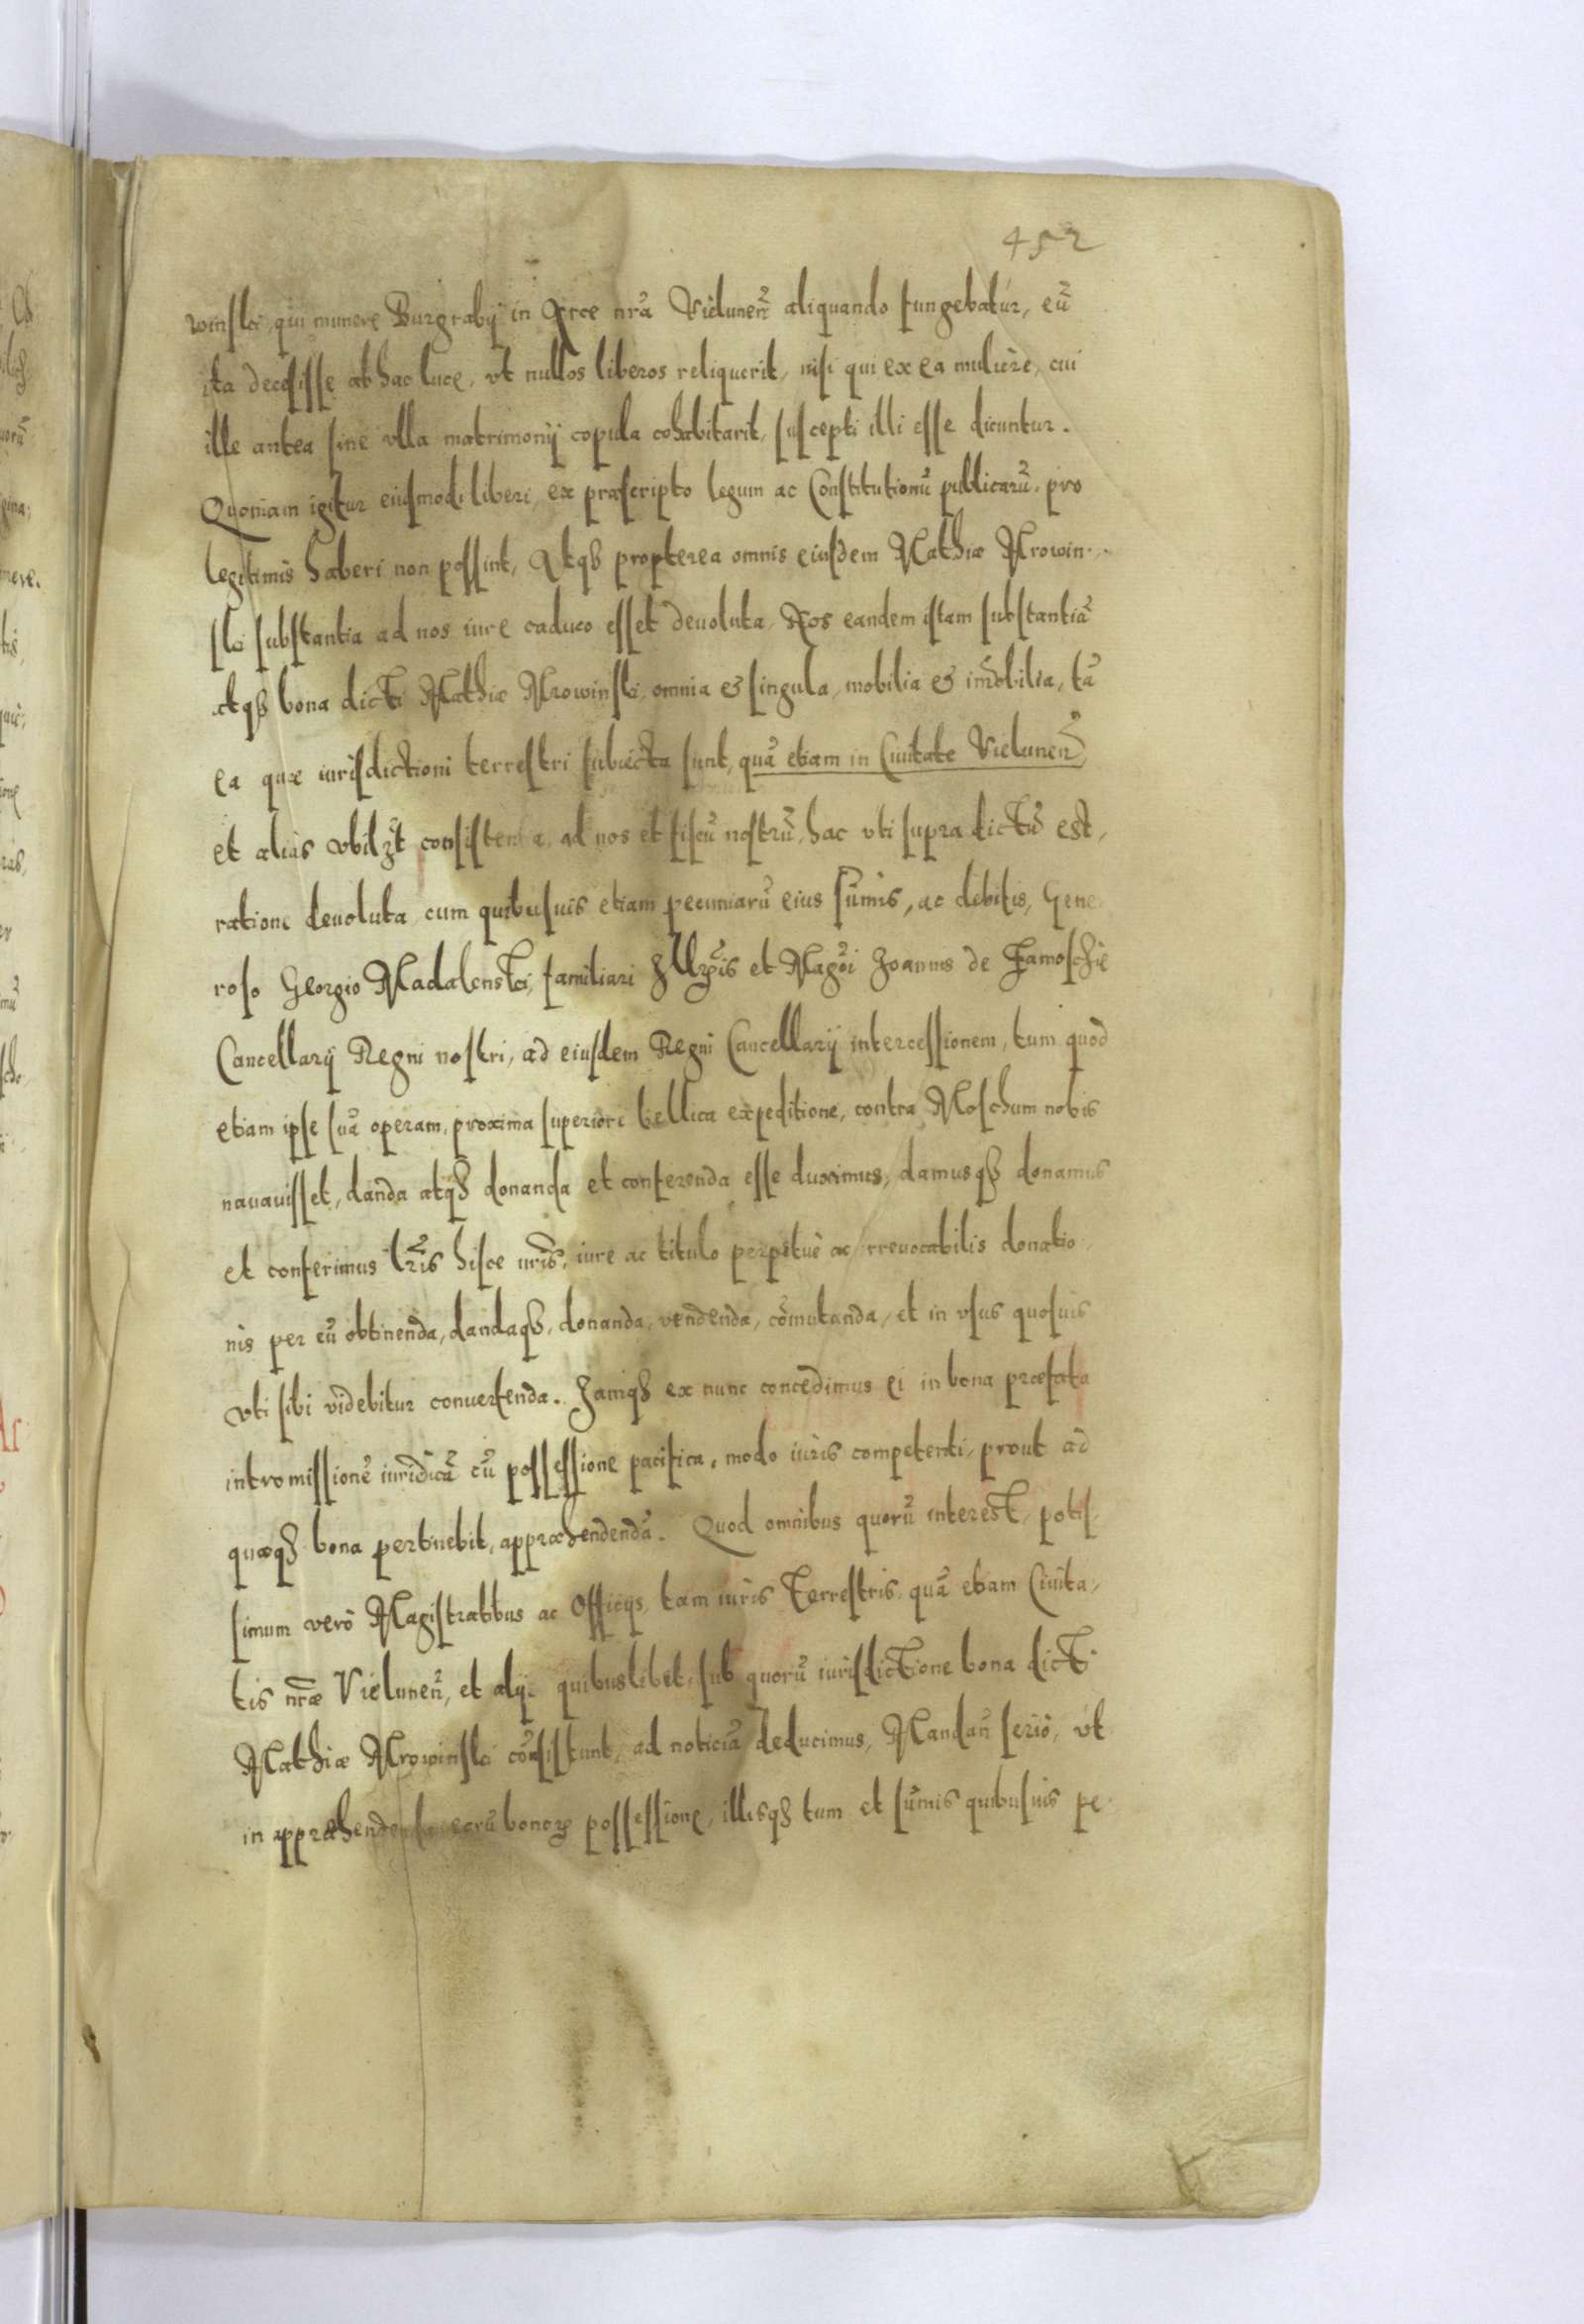 452
winski, qui munere Burgrabij in Arce nrã Vielunen̄ aliquando fungebatúr, eũ
ita decessisse ab hac luce, vt nullos liberos reliquerit, nisi qui ex ea muliere, cui
ille antea sine vlla matrimonij copula cohabitarit, suscepti illi esse dicuntur.
Quoniam igitur eiusmodi liberi, ex præscripto legum ac Constitutionũ publicarũ, pro
legitimis haberi non possint, Atqȝ propterea omnis eiusdem Mathiæ Mrowin-
ski substantia ad nos iure caduco esset deuoluta, Nos eandem istam substantiã
atqȝ bona dicti Mathiæ Mrowinski, omnia & singula, mobilia & im̃obilia, tã
ea quæ iurisdictioni terrestri subiecta sunt, quã etiam in Ciuitate Vielunen̄,
et aliàs vbilȝt consistentia, ad nos et fiscũ nostrũ, hac vti supra dictũ est,
ratione deuoluta, cum quibusuis etiam pecuniarũ eius sũmis, ac debitis, Gene-
roso Georgio Madalenski, familiari Illr̃is et Magc̃i Joannis de Zamoschie
Cancellarij Regni nostri, ad eiusdem Regni Cancellarij intercessionem, tum quòd
etiam ipse suã operam, proxima superiore bellica expeditione, contra Moschum nobis
nauauisset, danda atqȝ donanda et conferenda esse duximus, damusqȝ donamus
et conferimus lr̃is hisce nr̃is, iure ac titulo perpetuè ac irreuocabilis donatio-
nis per eũ obtinenda, dandaqȝ, donanda, vendenda, cõmutanda, et in vsus quosuis
vti sibi videbitur conuertenda. Jamqȝ ex nunc concedimus ei in bona præfata
intromissionẽ iuridicã cũ possessione pacifica, modo iuris competenti, prout ad
quæqȝ bona pertinebit, appræhendendã. Quod omnibus quorũ interest, potis-
simum verò Magistratibus ac Officijs, tam iuris Terrestris, quã etiam Ciuita-
tis nr̃æ Vielunen̄, et alijs quibuslibet, sub quorũ iurisdictione bona dicti
Mathiæ Mrowinski cõsistunt, ad noticiã deducimus, Mandan̄ seriò, vt
in appræhendenda eorũ bonorꝫ possessione, illisqȝ tum et sũmis quibusuis pe-